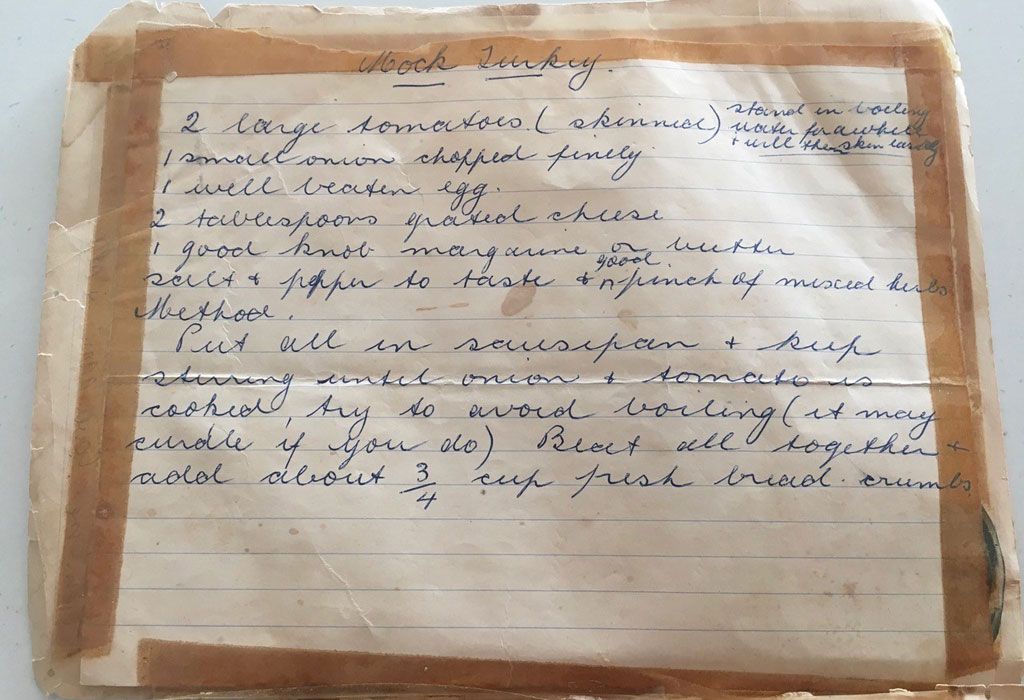 Mock Turkey.
2 large tomatoes. (skinned) stand in boiling
water for awhile
+ will then skin easily
1 small onion chopped finely
1 well beaten egg.
2 tablespoons grated cheese
1 good knob margarine or butter
good
salt + pepper to taste + a pinch of mixed herbs
Method.
Put all in sausepan + keep
stirring until onion + tomato is
cooked, try to avoid boiling (it may
curdle if you do) Beat all together +
add about 3/4 cup fresh bread crumbs